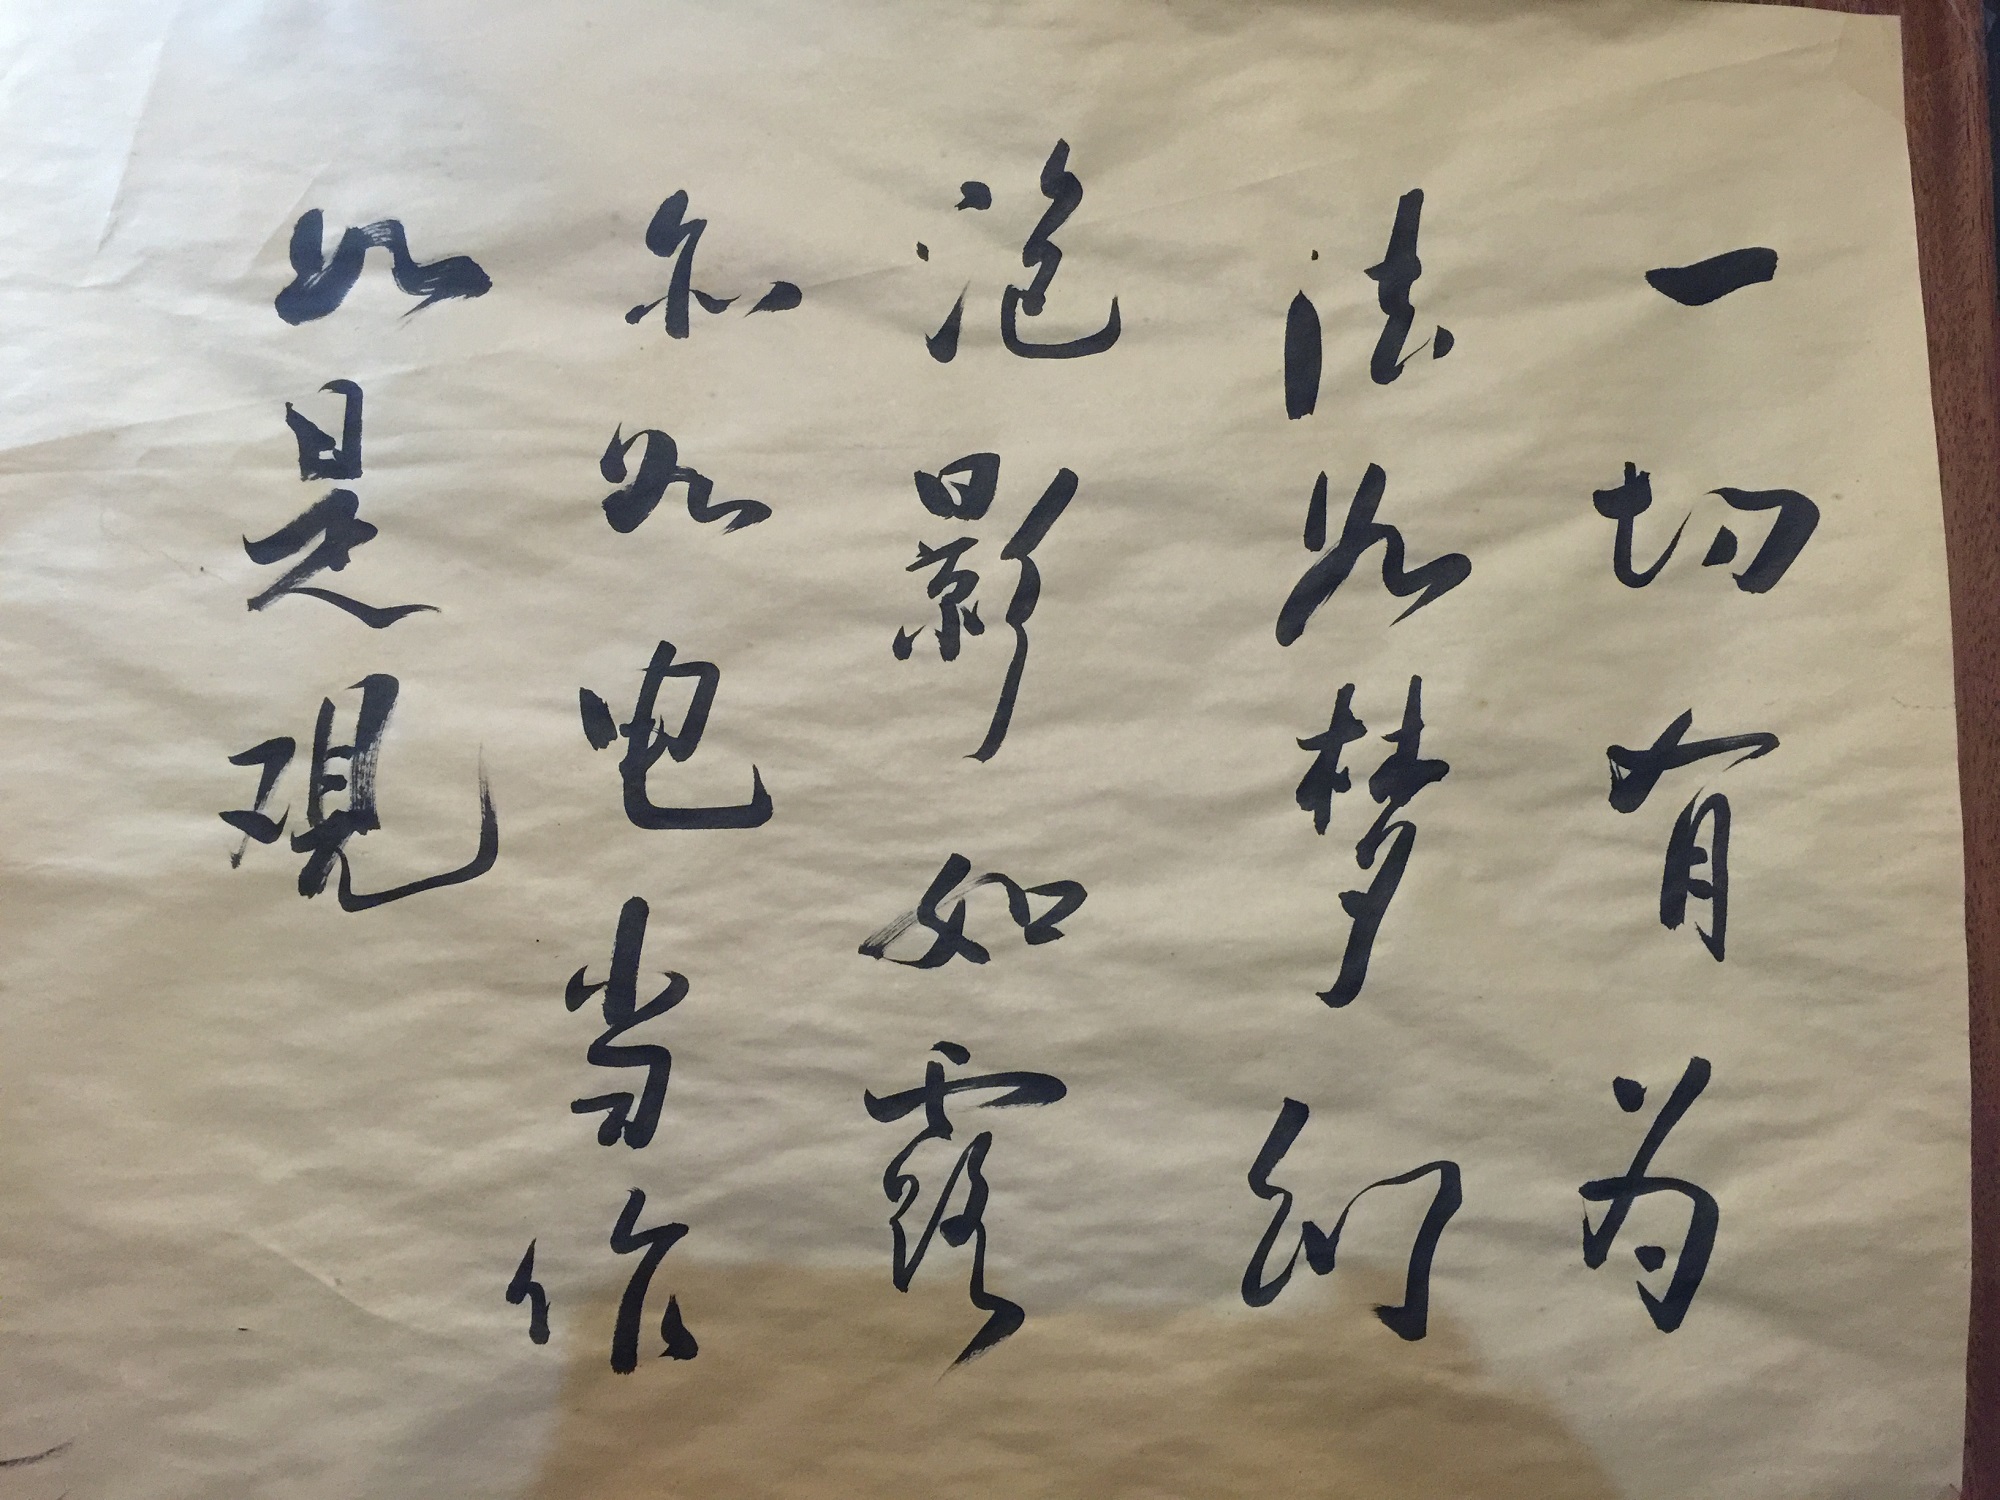 一切有为
法如梦幻
泡影如露
亦如电当作
如是观